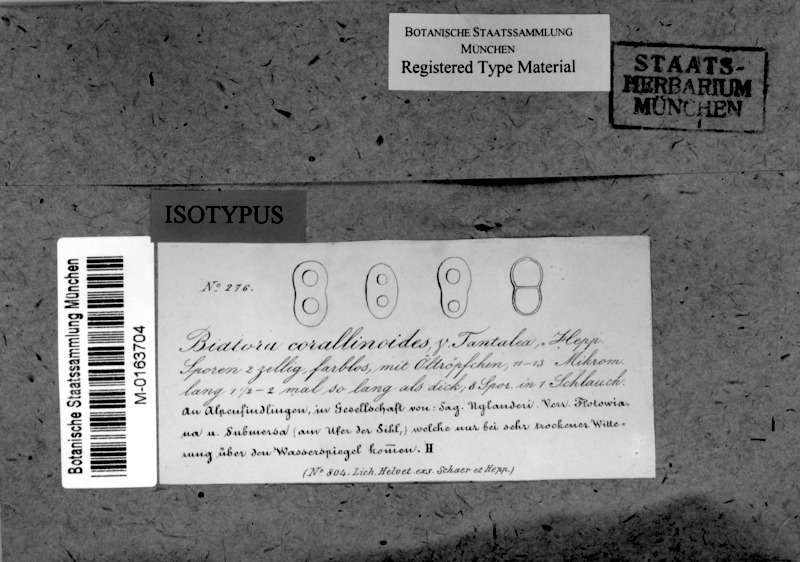 BOTANISCHE STAATSSAMMLUNG
MÜNCHEN
Registered Type Material
STAATS-
HERBARIUM
MÜNCHEN
ISOTYPUS
Botanische Staatssammlung München
M-0163704
No. 276.
Biatora corallinoides, γ. Tantalea, Hepp.
Sporen 2 zellig, farblos, mit Öltröpfchen, 11-13 Mikrom.
lang 1 1/2-2 mal so lang als dick, 8 Spor. in 1 Schlauch.
An Alpenfindlingen, in Gesellschaft von: Sag. Nylanderi. Verr. Flotowia-
na u. Submersa (am Ufer der Sihl,) welche nur bei sehr trockener Witte-
rung über den Wasserspiegel kom̄en. H
(No. 804. Lich. Helvet. exs. Schaer et Hepp.)